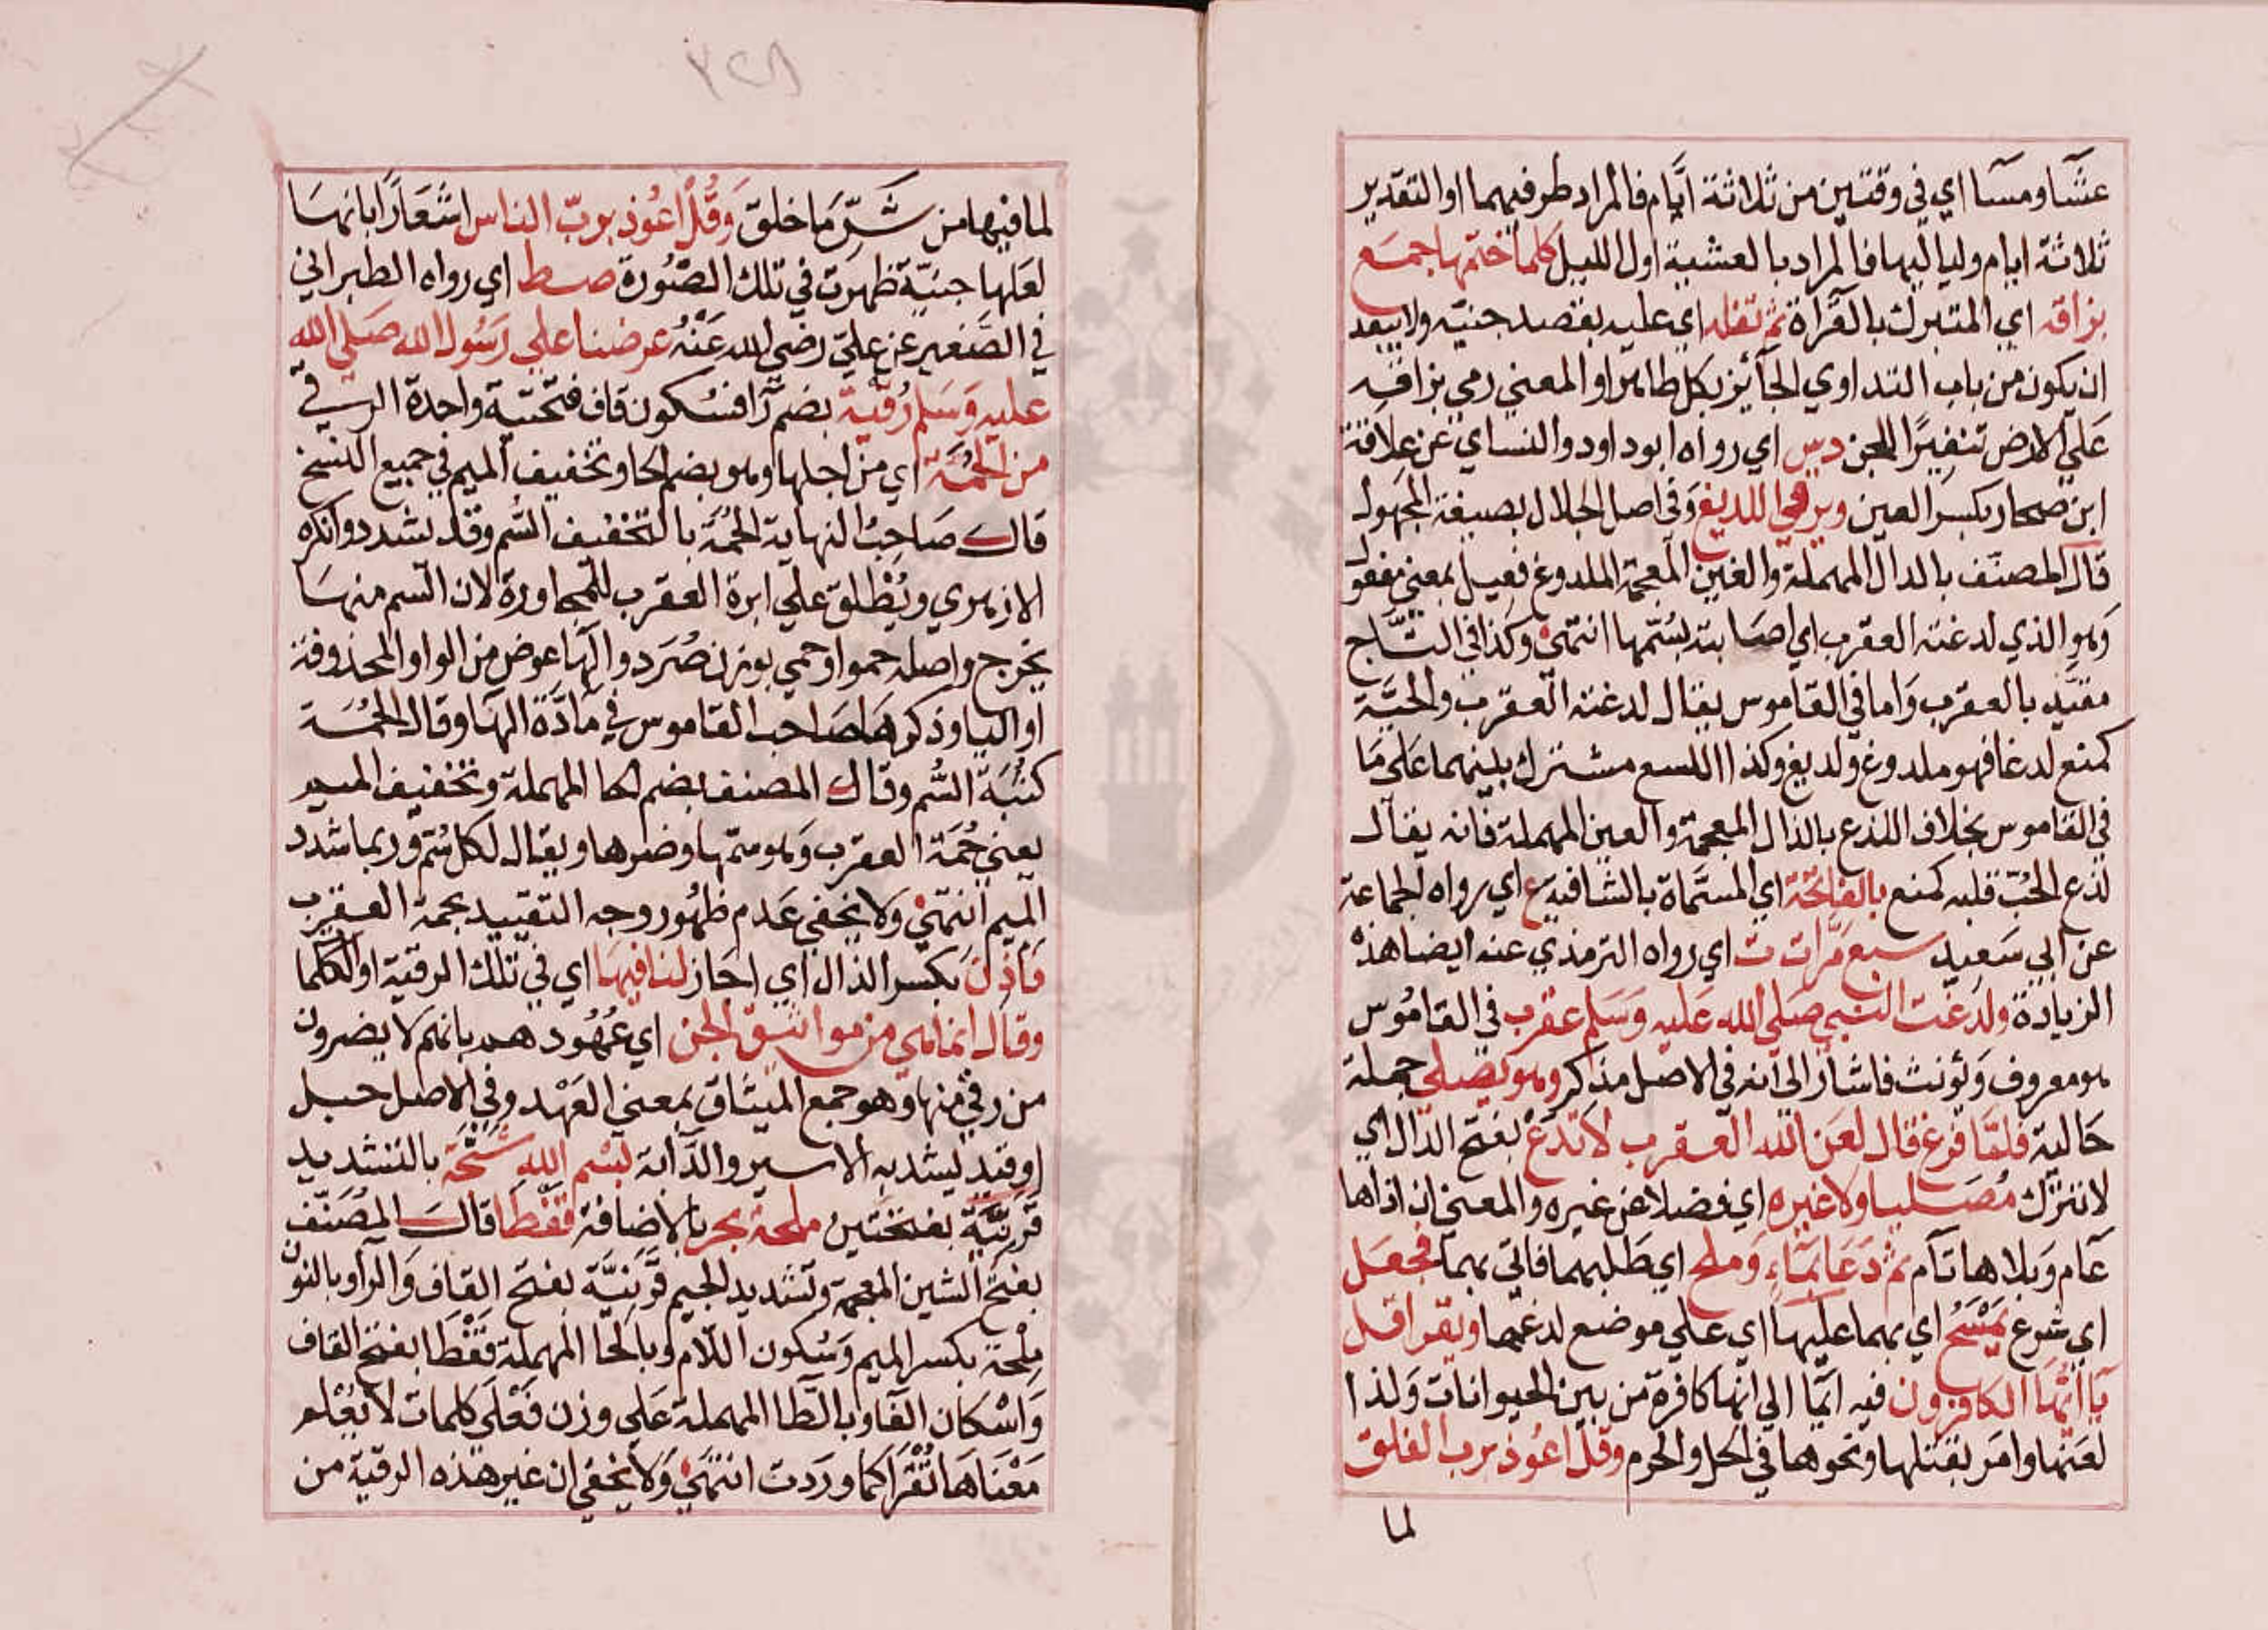 عشاً ومساً اي في وقتين من ثلاثة ايام فالمراد طرفيهما او التقدير
ثلاثة ايام ولياليها فالمراد بالعشية اول الليل كلما ختمها جمع
بزاقه اي المتبرك بالقراة ثم تفله اي عليه بقصد جنيّه ولا يبعد
ان يكون من باب التداوي الجآئز بكل طاهر او المعني رمي بزاقه
علي الارض تنفيرًا للجن دس اي رواه ابو داود والنساي عن علاقة
ابن صحار بكسر العين ويرقي اللديغ وفي اصل الجلال بصيغة المجهول
قال المصنف بالدال المهملة والغين المعجمة الملدوغ فعيل بمعني مفعول
وهو الذي لدغته العقرب اي اصابته بسُمّها انتهي وكذا في التاج
مقيّد بالعقرب واما في القاموس يقال لدغته العقرب والحيّة
كمنع لدغا فهو ملدوغ ولديغ وكذا اللسع مشترك بينهما علي ما
في القاموس بخلاف اللذع بالذال المعجمة والعين المهملة فانه يقال
لذع الحُبّ قلبه كمنع بالفاتحة اي المسمّاة بالشافيه ع اي رواه الجماعة
عن ابي سعيد سبع مرّات ت اي رواه الترمذي عنه ايضا هذه
الزيادة ولدغت النبي صلي الله عليه وسلم عقرب في القاموس
هو معروف ويؤنث فاشار الي انه في الاصل مذكر وهو يصلي جملة
حالية فلمّا فرغ قال لعن الله العقرب لا تدع بفتح الدال اي
لا تترك مُصليا ولا غيره اي فضلا عن غيره والمعني ان اذاها
عام وبلاها تام ثم دَعَا بمآءٍ وملح اي طلبهما فاتي بهما فجعل
اي شرع يمسَحُ اي بهما عليها اي علي موضع لدغها ويقرا قل
يا ايّها الكافرون فيه ايما الي انها كافرة من بين الحيوانات ولذا
لعنها وامر بقتلها ونحوها في الحل والحرم وقل اعوذ برب الفلق
لما
٣٢٨
لما فيها من شَرِّ مَا خلق وقُل اعُوذ بربّ الناس اشعَارًا بانهَا
لعلها جنيّة ظهرت في تلك الصُّورة صط اي رواه الطبراني
في الصَّغير عن عليّ رضي الله عَنْهُ عرضنا علي رسُول الله صَلي الله
عليه وَسَلم رُقيّة بضم رآ فسُكون قاف فتحتيّة واحدة الرقي
من الحُمَة اي من اجلها وهو بضم الحا وتخفيف الميم في جميع النسخ
قال صَاحبُ النهاية الحُمَة بالتخفيف السُّم وقد يشدد وانكره
الازهري ويُطلق علي ابرة العقرب للمجاورة لان السّم منها
يخرج واصله حمو او حمي بوزن صُرَد والهآ عوض من الواو المحذوفة
او اليا وذكرهَا صَاحب القاموس في مادّة الهَا وقال الحُمَة
كثُبَة السُّم وقال المصنف بضم الحا المهملة وتخفيف الميم
يعني حُمَة العقرب وَهو سمّها وضرها ويقال لكل سُمّ وربما شدد
الميم انتهي ولا يخفي عَدم ظهُور وجه التقييد بحمة العقرب
فاذن بكسر الذال اي اجاز لنا فيها اي في تلك الرقية او الكلما
وقال انما هي من مواثيق الجن اي عُهُودهم بانهم لا يضرون
من رقي منها وهو جمع الميثاق بمعني العَهْد وفي الاصل حبل
او قيد يشد به الاسير والدّابة بسْم الله شَجّة بالتشديد
قَرَنيّة بفتحتين ملحة بحر بالاضافة قفطا قالَ المصنّف
بفتح الشين المعجمة وتشديد الجيم قَرَنيَّة بفتح القاف والرآ وبالنون
مِلحة بكسر الميم وسُكون اللّام وبالحا المهملة قَفْطَا بفتح القاف
وَاسْكان الفا وبالطّا المهملة عَلي وزن فَعْلَي كلمات لا يُعْلم
مَعْنَاهَا تُقْرَا كما وردت انتهي وَلا يخفي ان غير هذه الرقية من